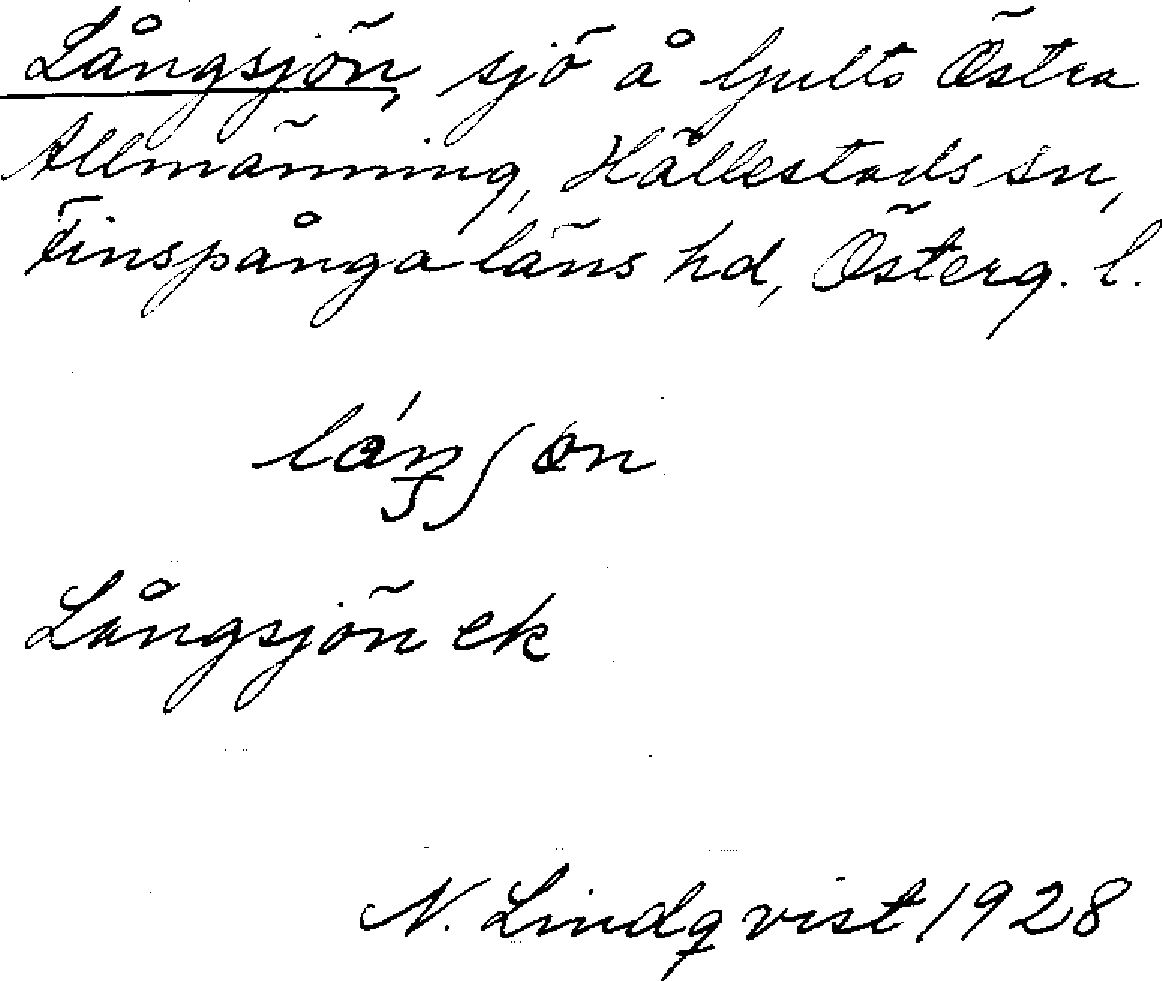 Långsjön, sjö å Gults Östra
Allmänning, Hällestads sn,
Finspånga läns hd, Österg. l.
Långsjön ek
N. Lindqvist 1928